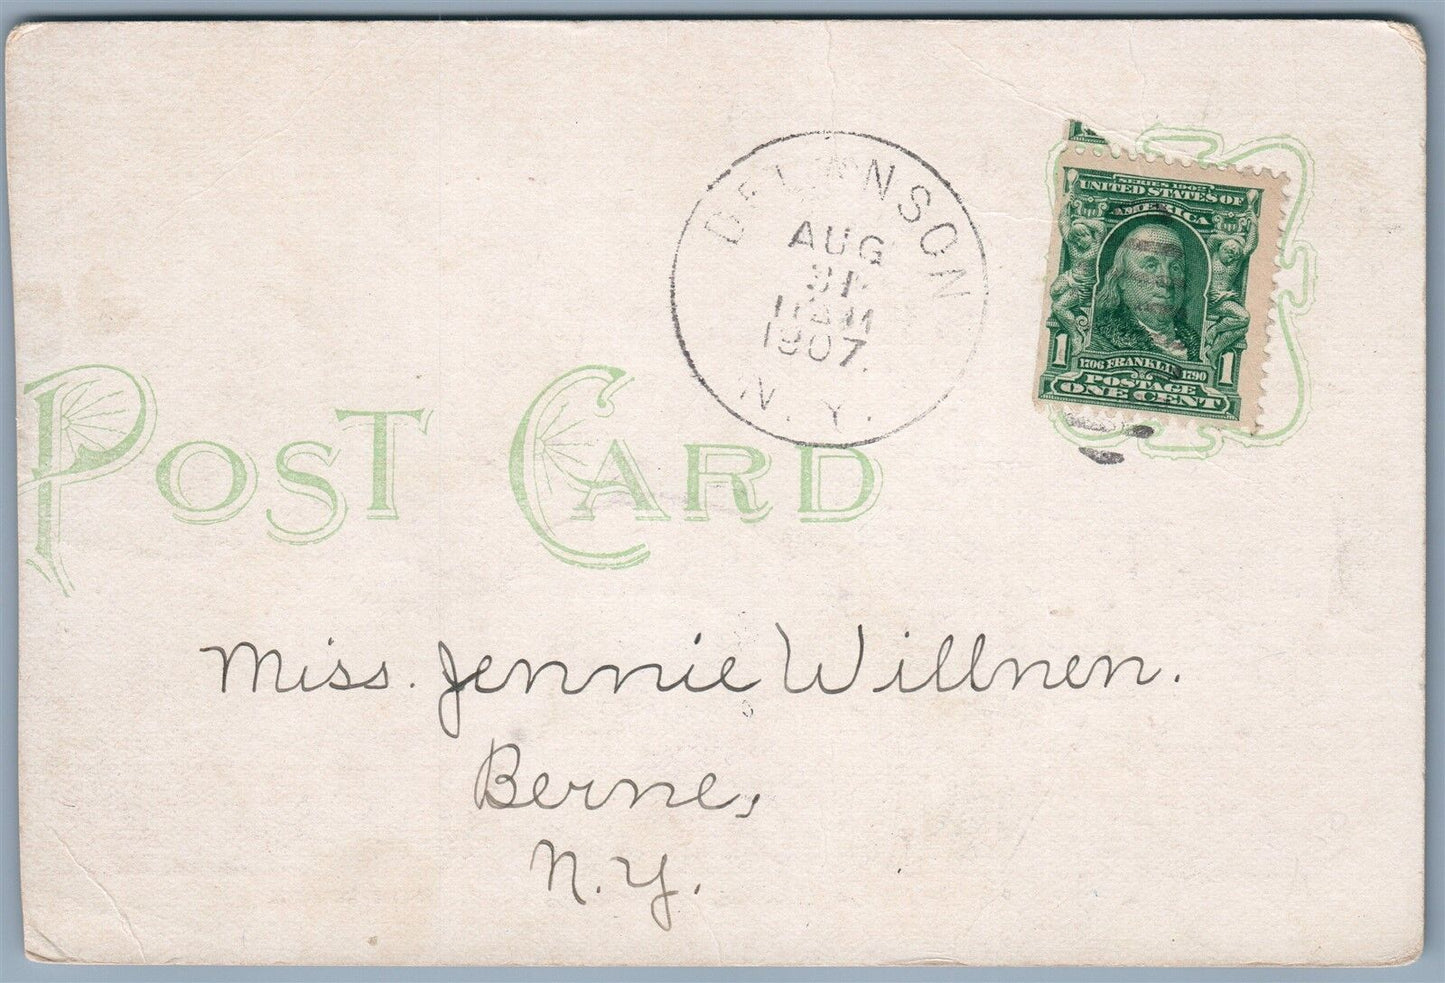 DELANSON
AUG
31
11 AM
1907.
N. Y.
SERIES 1902
UNITED STATES OF
AMERICA
1706 FRANKLIN 1790
1 POSTAGE 1
ONE CENT
POST CARD
Miss. Jennie Willnen.
Berne,
N.Y.